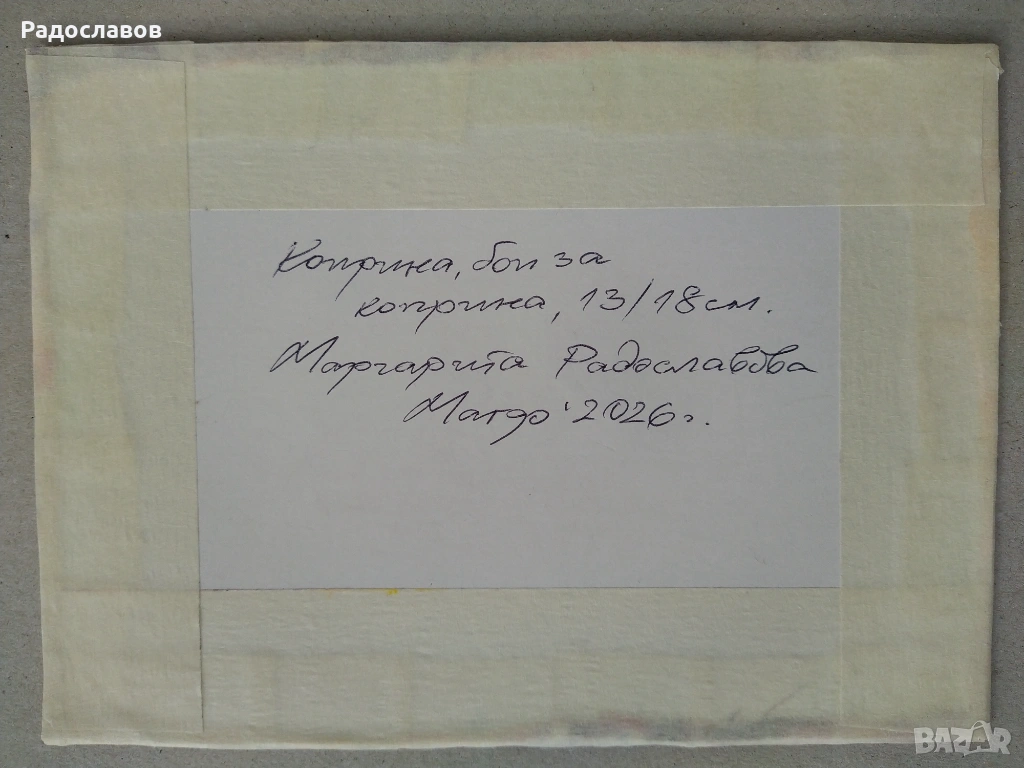 Радославов
Коприна, бои за
коприна, 13/18см.
Маргарита Радославова
Магдо '2026г.
BAZAR